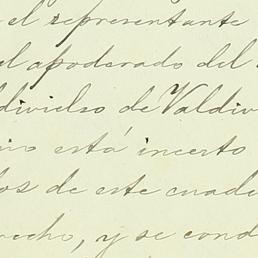 el representante
el apoderado del
divielso de Valdiv
no está incerto
dos de este cuade
recho, y se cond